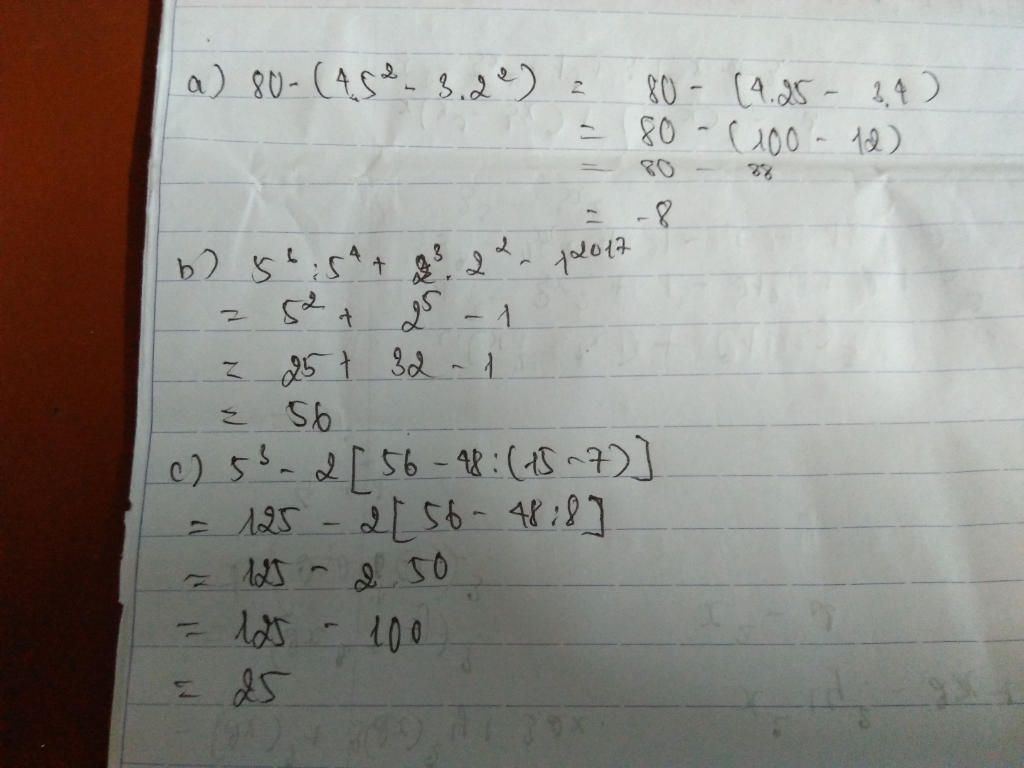 a) 80 - (4.5² - 3.2²) = 80 - (4.25 - 3.4)
= 80 - (100 - 12)
= 80 - 88
= -8
b) 5⁶ : 5⁴ + 2³. 2² - 1²⁰¹⁷
= 5² + 2⁵ - 1
= 25 + 32 - 1
= 56
c) 5³ - 2 [ 56 - 48 : (15 - 7) ]
= 125 - 2 [ 56 - 48 : 8 ]
= 125 - 2 . 50
= 125 - 100
= 25